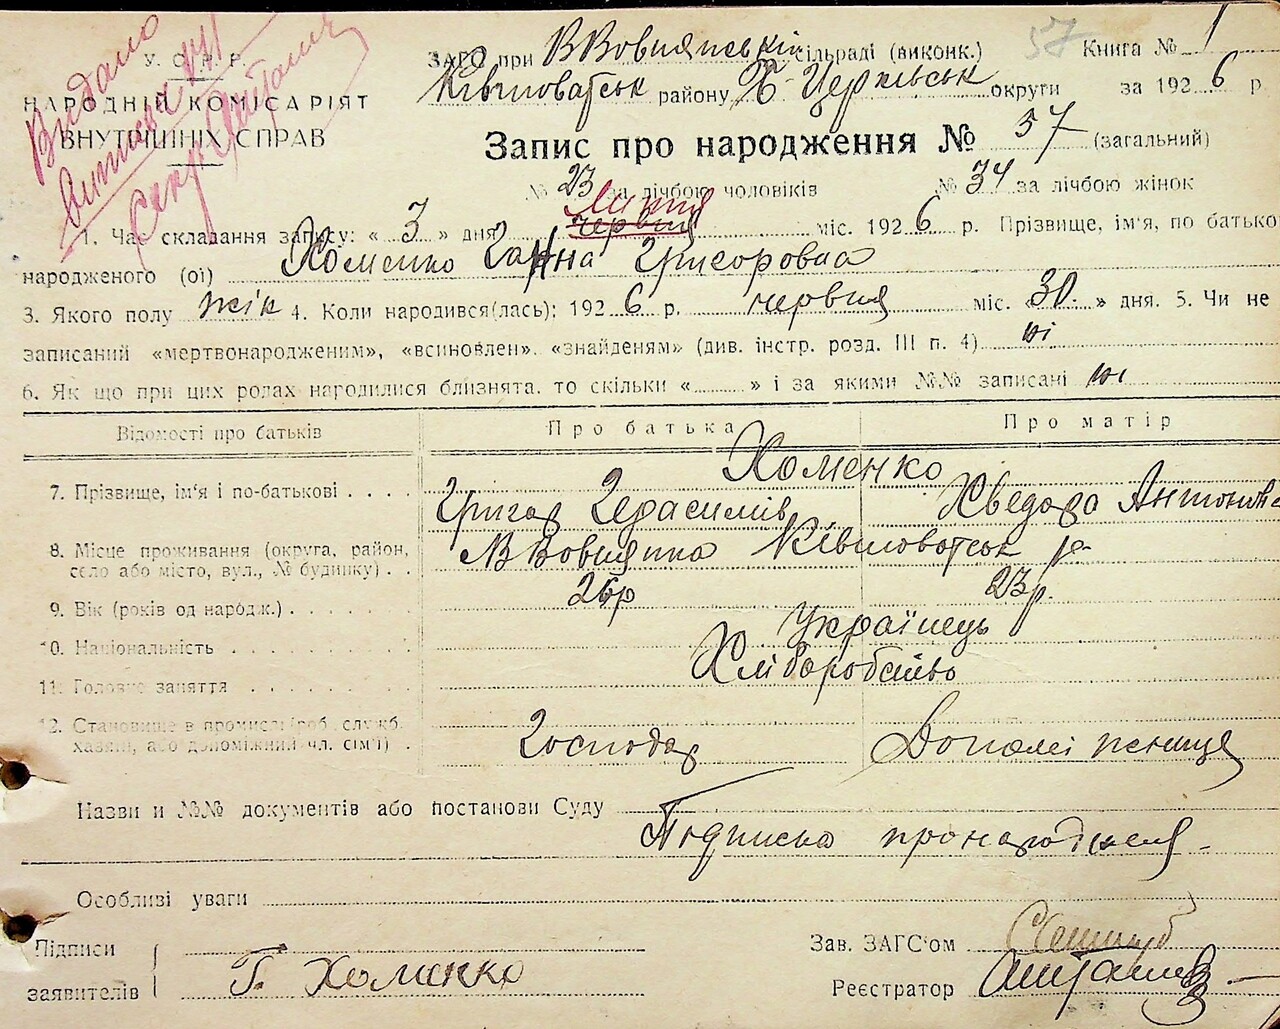 Видано
У.С.Р.Р.
НАРОДНІЙ КОМІСАРІЯТ
ВНУТРІШНІХ СПРАВ
ЗАГС при ВВовнянській сільраді (виконк.) 57 Книга № 1
Ківшоватськ району Б-Церківськ округи за 1926 р.
Запис про народження № 57 (загальний)
№ 23 за лічбою чоловіків № 34 за лічбою жінок
Липня
1. Час складання запису: « 3 » дня червня міс. 1926 р. Прізвище, ім'я, по батькo
народженого (ої) Хоменко Ганна Григоровна
3. Якого полу жін 4. Коли народився(лась): 1926 р. червня міс. 30 » дня. 5. Чи не
записаний «мертвонародженим», «всиновлен». «знайденям» (див. інстр. розд. III п. 4) ні
6. Як що при цих родах народилися близнята, то скільки « » і за якими №№ записані ні
Відомості про батьків Про батька Про матір
Хоменко
7. Прізвище, ім'я і по-батькові Григор Герасимів Хведора Антонов
8. Місце проживання (округа, район, ВВовнянка Ківшоватськ р.
село або місто, вул., № будинку)
9. Вік (років од народж.) 26р 23р.
10. Національність Українець
11. Головне заняття Хліборобство
12. Становище в промислі (роб. служб.
хазяїн, або допоміжний чл. сім'ї) Господар Допоміжниця
Назви и №№ документів або постанови Суду
Підписка про народження
Особливі уваги
Підписи
заявителів Г. Хоменко
Зав. ЗАГС'ом
Реєстратор